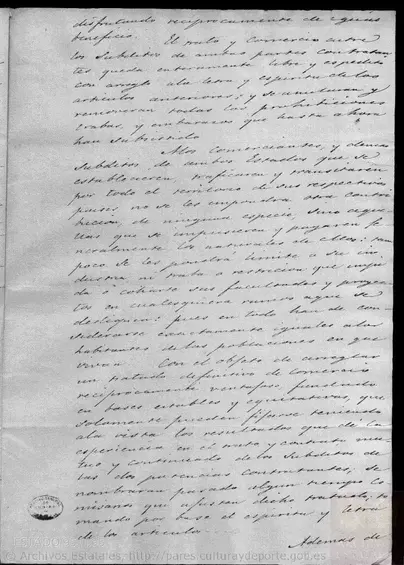 disfrutando reciprocamente de iguales
beneficio. El trato y comercio entre
los Subditos de ambas partes contratan
tes queda enteramente libre y espedito
con arreglo a la letra y espiritu de los
articulos anteriores; y se anularan y
removeran todas las prohibiciones
trabas, y embarazos que hasta ahora
han subsistido
A los comerciantes, y demas
Subditos de ambos Estados que se
establecieren, traficaren y transitaren
por todo el territorio de sus respectivos
paises no se les impondra otra contri
bucion, de ninguna especie, sino aque
llas que se impusieren y pagaren ge
neralmente los naturales de ellos: tam
poco se les pondrá limite a su in
dustria ni traba o restriccion que impi
da o coharte sus facultades y proyec
tos en cualesquiera ramos a que se
destinguen: pues en todo han de con
siderarse exactamente iguales a los
habitantes de las poblaciones en que
vivan. Con el objeto de arreglar
un tratado definitivo de comercio
reciprocamente ventajoso fundado
en bases estables y equitativas, que
solamente pueden fijarse teniendo
a la vista los resultados que de la
esperiencia en el trato y contrato mu
tuo y continuado de los Subditos de
las dos potencias contratantes; se
nombraran pasado algun tiempo Co
misarios que ajusten dicho tratado, to
mando por base el espiritu y letra
de los articulos
Ademas de
© Archivos Estatales, http://pares.culturaydeporte.gob.es